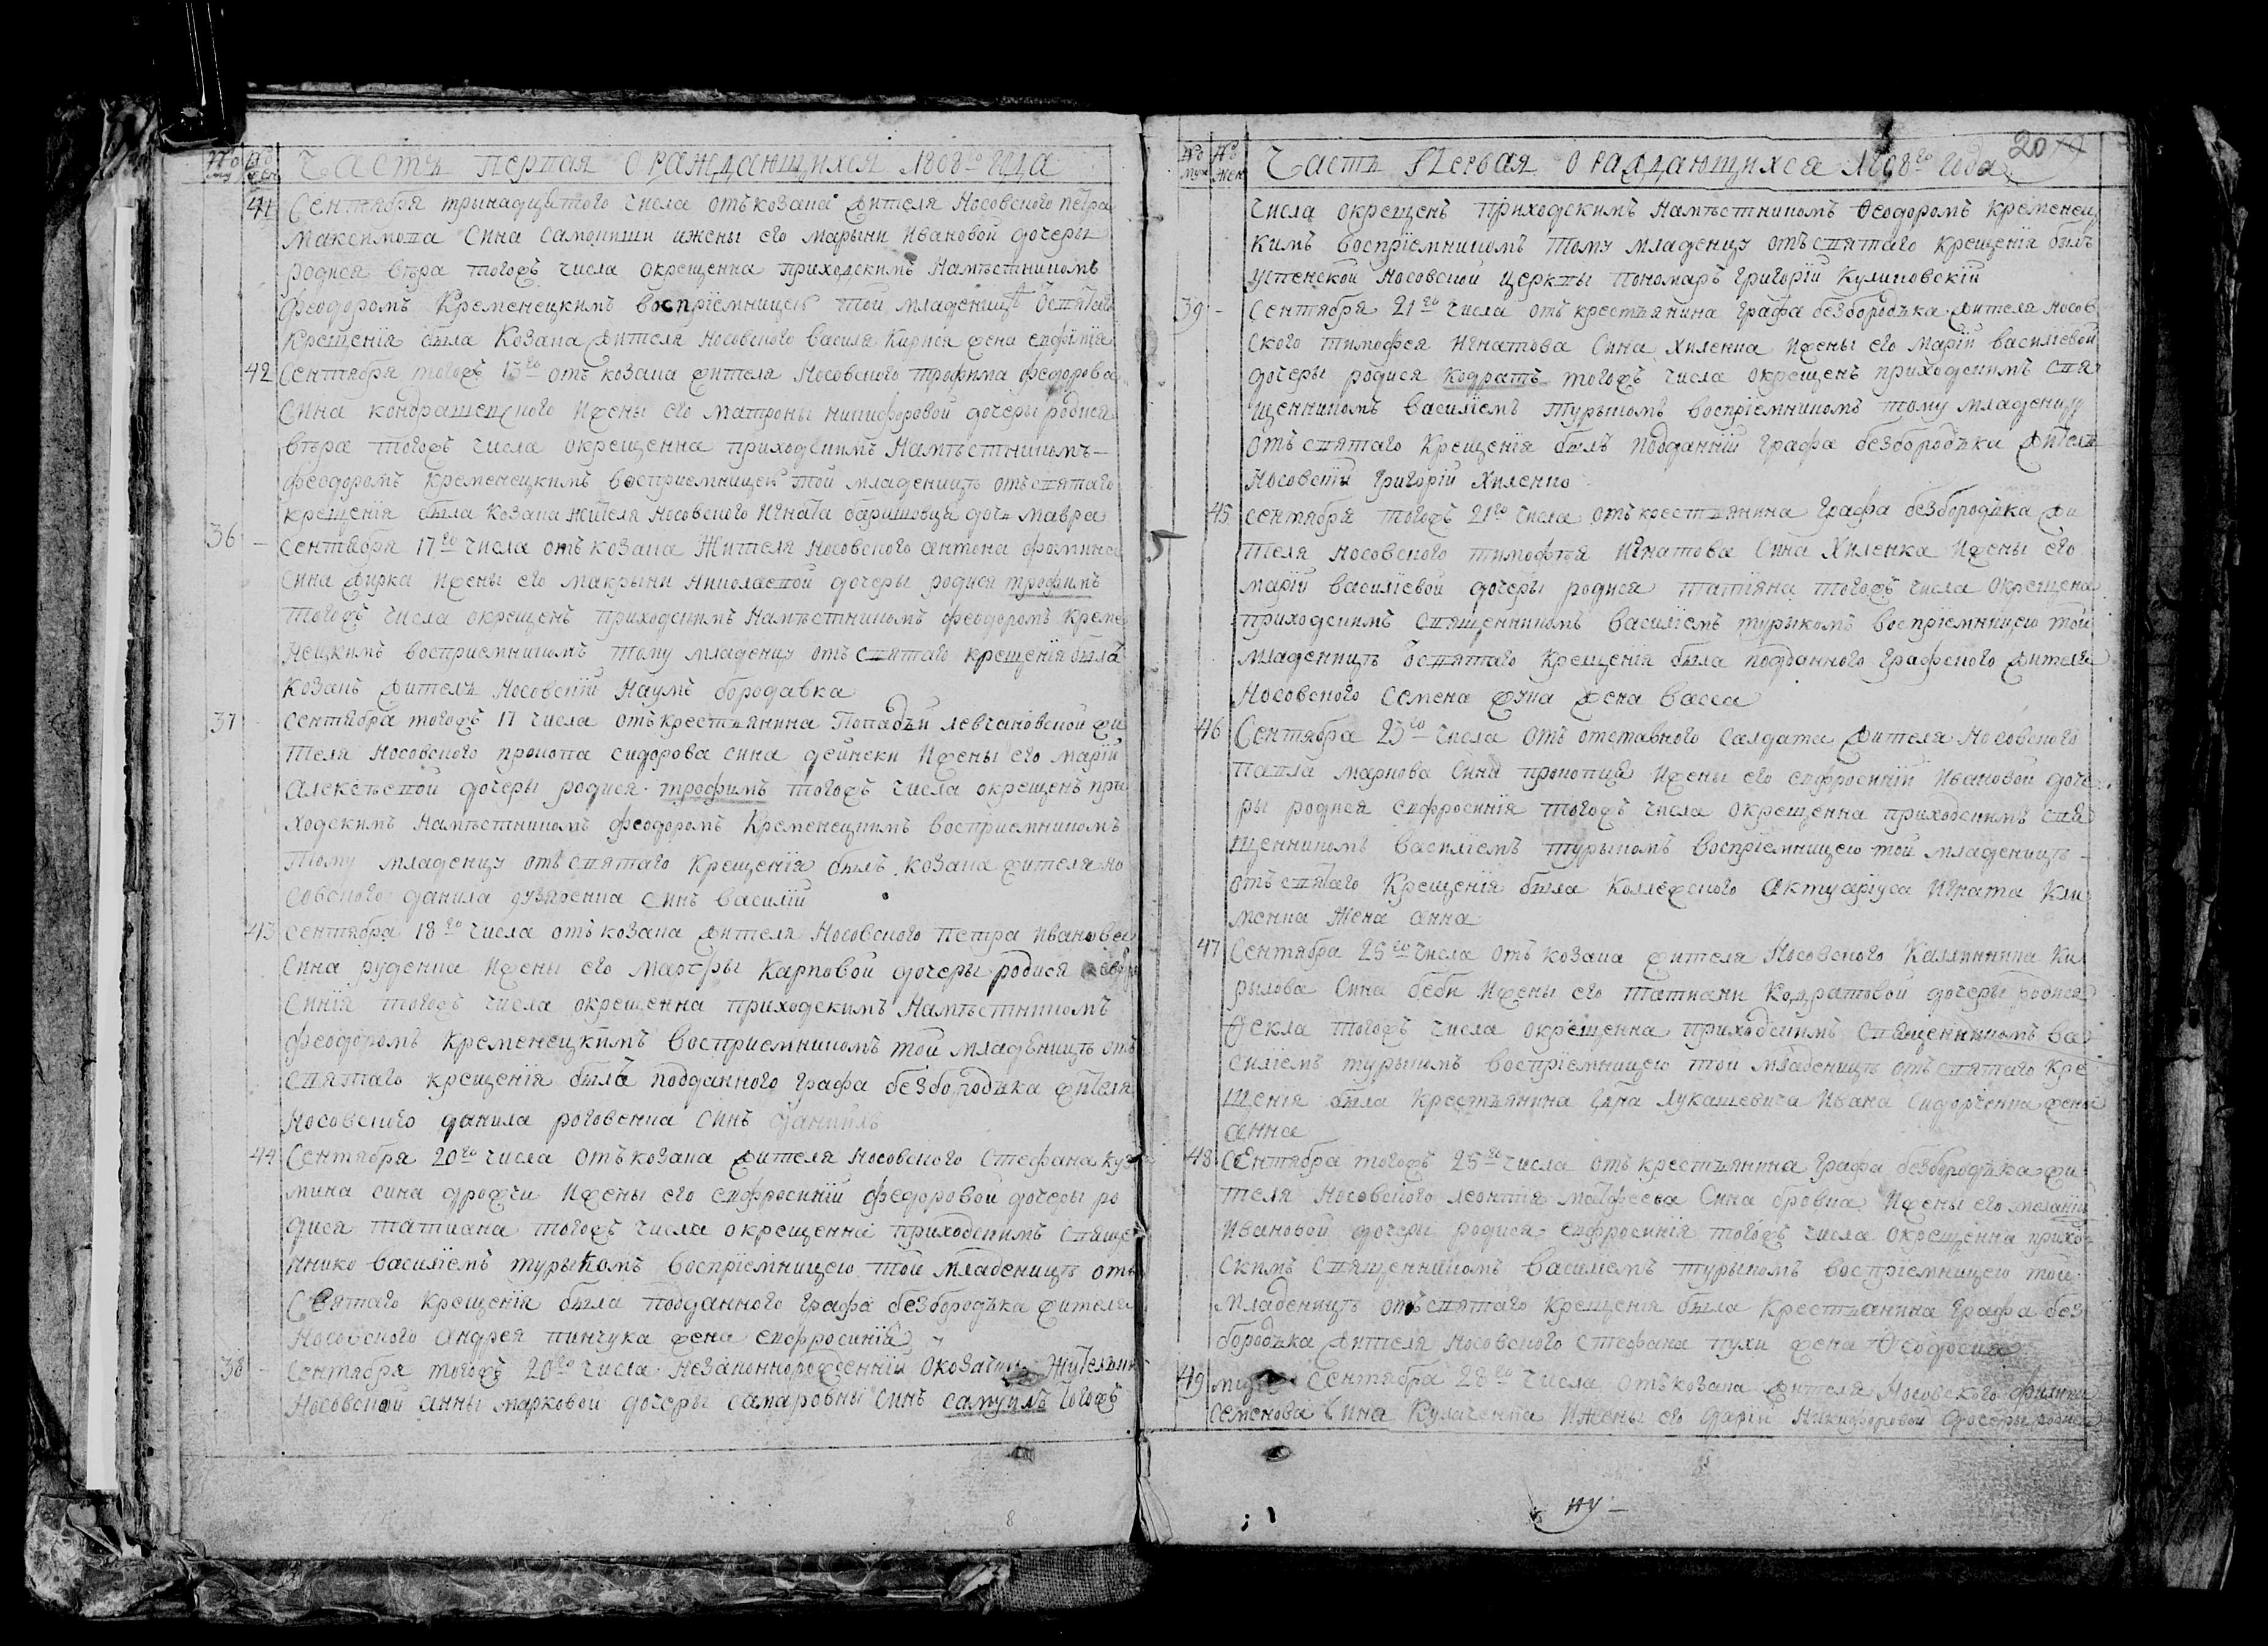 Часть первая о раждающихся 1808го года
41 Сентября тринадцятого числа отъ козака жителя Носовского Петра
Максимова сина Самониши и жены его Марыни Ивановой дочеры
родися вѣра тогожъ числа окрещенна приходскимъ Намѣстникомъ
Феодоромъ Кременецкимъ воспріемницею той младеницѣ отъ святаго
Крещенія была Козака жителя Носовского Василя жена евфимія
42 Сентября тогожъ 13го отъ козака жителя Носовского трофима федорова
Сина кондрашевского Ижены его Матроны никифоровой дочеры родися
вѣра тогожъ числа окрещенна приходскимъ Намѣстникомъ
феодоромъ Кременецкимъ восприемницей той младеницѣ отъ святаго
крещенія была козака жителя Носовского Игната баришовца дочь мавра
36 Сентября 17го числа отъ козака Жителя Носовского антона фомина
Сина жирка Ижены его макрыни николаевой дочеры родися трофимъ
тогожъ числа окрещенъ приходскимъ Намѣстникомъ феодоромъ Креме
нецкимъ восприемникомъ тому младенцу отъ святаго крещенія былъ
Козакъ жителъ Носовскій Наумъ бородавка
37 Сентября тогожъ 17 числа отъ крестьянина Попадьи левчановской жи
теля Носовского прокопа сидорова сина дейнеки Ижены его маріи
алексѣевой дочеры родися трофимъ тогожъ числа окрещенъ при
ходскимъ Намѣстникомъ феодоромъ Кременецкимъ восприемникомъ
тому младенцу отъ святаго Крещенія былъ козака жителя но
совского данила синъ василій
43 Сентября 18го числа отъ козака жителя Носовского Петра Иванова
Сина руденка Ижены его Марфы Карповой дочеры родися евфро
синія тогожъ числа окрещенна приходскимъ Намѣстникомъ
феодоромъ Кременецкимъ восприемникомъ той младеницѣ отъ
святаго крещенія былъ подданного графа безбородька жителя
Носовского данила роговенка синъ даниилъ
44 Сентября 20го числа отъ козака жителя Носовского Стефана куз
мина сина дрофчи Ижены его евфросиніи федоровой дочеры ро
дися татиана тогожъ числа окрещенна приходскимъ свяще
ннико василіемъ турыкомъ воспріемницею той младеницѣ отъ
Святаго Крещенія была подданного графа безбородька жителя
Носовского андрея пинчука жена евфросинія
38 Сентября тогожъ 20го числа незаконнорожденній Жителки
Носовской анны марковой дочеры самаровны синъ самуилъ тогожъ
20
Часть Первая о раждающихся 1808го года
числа окрещенъ приходскимъ Намѣстникомъ Ѳеодоромъ Кременец
кимъ воспріемникомъ тому младенцу отъ святаго крещенія былъ
Успенской Носовской церкви пономаръ григорій Куликовскій
39 Сентября 21го числа отъ крестьянина графа безбородька жителя Носов
ского тимофея Игнатова Сина Хиленка Ижены его Маріи василіевой
дочеры родися кодратъ тогожъ числа окрещенъ приходскимъ свя
щенникомъ василіемъ турыкомъ воспріемникомъ тому младенцу
отъ святаго Крещенія былъ подданній графа безбородьки жителъ
Носовскій григорій Хиленко
45 сентября тогожъ 21го числа отъ крестьянина графа безбородька жи
теля Носовского тимофѣя Игнатова Сина Хиленка Ижены его
маріи василіевой дочеры родися татіяна тогожъ числа окрещена
приходскимъ священникомъ василіемъ турыкомъ воспріемницею той
младеницѣ отъ святаго крещенія была подданного графского жителя
Носовского Семена жука жена васса
46 Сентября 23го числа отъ отставного салдата жителя Носовского
павла маркова Сина прокопця Ижены его евфросиніи Ивановой доче
ры родися евфросинія тогожъ числа окрещенна приходскимъ свя
щенникомъ василіемъ турыкомъ воспріемницею той младеницѣ
отъ святаго Крещенія была Коллежского актуаріуса Игната Кли
менка Жена анна
47 Сентября 25го числа отъ козака жителя Носовского Каллиника Ки
рылова Сина беби Ижены его татиани Кодратовой дочеры родися
Ѳекла тогожъ числа окрещенна приходскимъ священникомъ ва
силіемъ турыкомъ воспріемницею той младеницѣ отъ святаго Кре
щенія была Крестьянина Лукашевича Ивана Сидорченка жена
анна
48 Сентября тогожъ 25го числа отъ крестьянина графа безбородька жи
теля Носовского леонтія матфеева Сина бровка Ижены его меланіи
Ивановой дочеры родися евфросинія тогожъ числа окрещенна прихо
скимъ священникомъ василіемъ турыкомъ воспріемницею той
младеницѣ отъ святаго крещенія была крестьянина графа без
бородька жителя Носовского стефана пухи жена Ѳеодосия
49 Сентября 28го числа отъ козака жителя Носовского филипа
семенова Сина Кулаченка Ижены его дарии Никифоровой дочеры родися